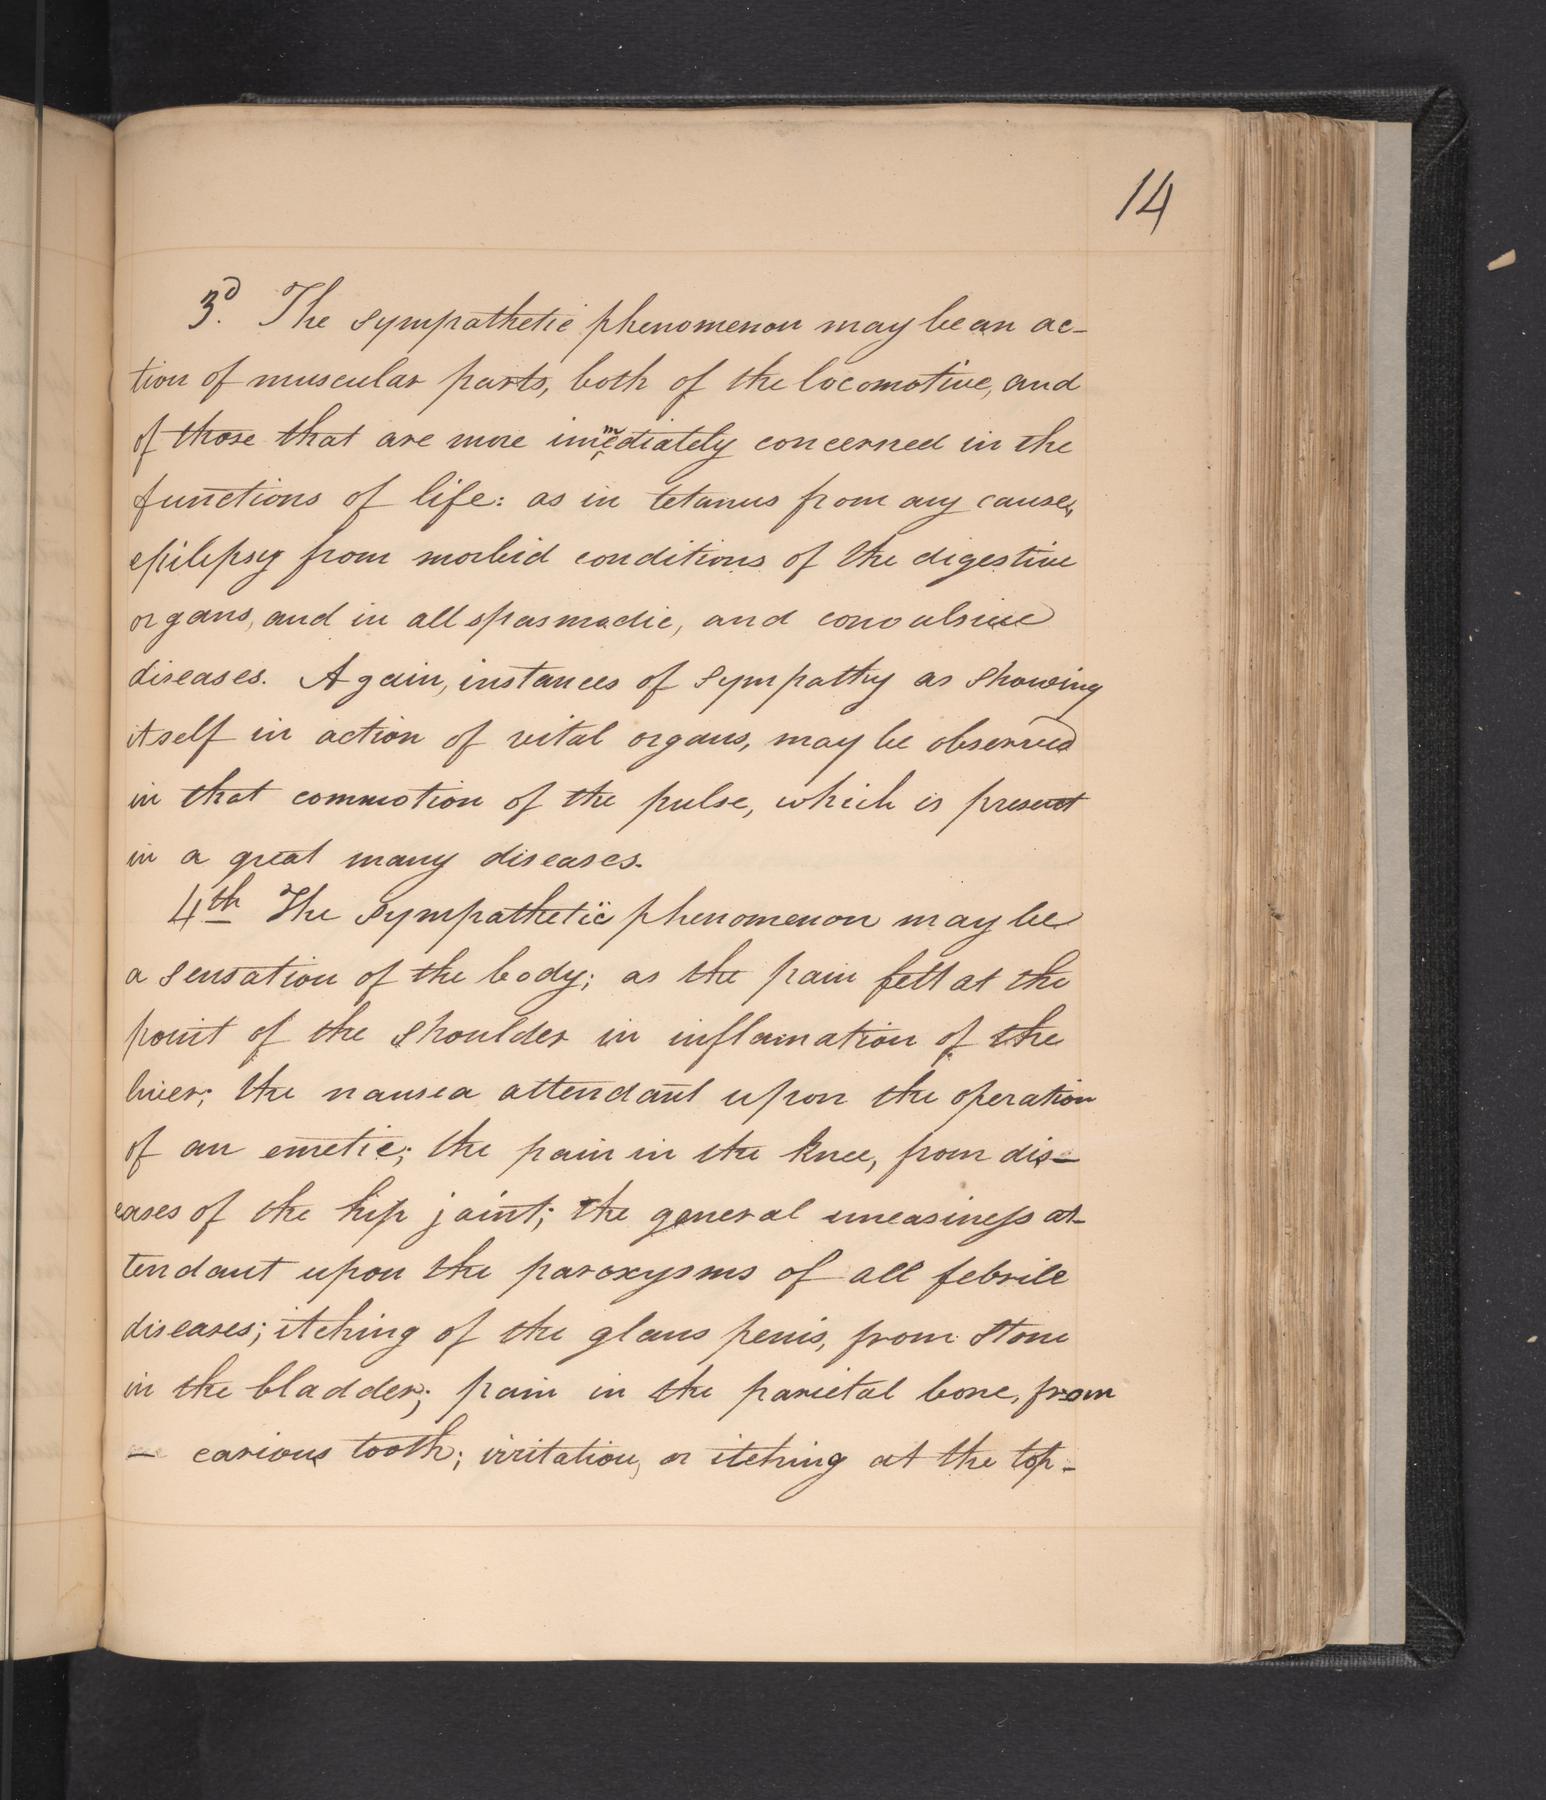 14
3d. The sympathetic phenomenon may be an ac-
tion of muscular parts, both of the locomotive, and
of those that are more immediately concerned in the
functions of life: as in tetanus from any cause,
epilepsy from morbid conditions of the digestive
organs, and in all spasmodic, and convulsive
diseases. Again, instances of sympathy as showing
itself in action of vital organs, may be observed
in that commotion of the pulse, which is present
in a great many diseases.
4th The sympathetic phenomenon may be
a sensation of the body; as the pain felt at the
point of the shoulder in inflamation of the
liver; the nausea attendant upon the operation
of an emetic; the pain in the knee, from dis-
eases of the hip joint; the general uneasiness at-
tendant upon the paroxysms of all febrile
diseases; itching of the glans penis, from stone
in the bladder; pain in the parietal bone, from
— carious tooth; irritation, or itching at the top-